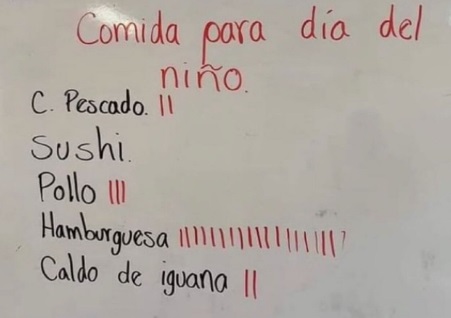 Comida para día del
niño.
C. Pescado. ||
Sushi.
Pollo |||
Hamburguesa ||||||||||||||||
Caldo de iguana ||